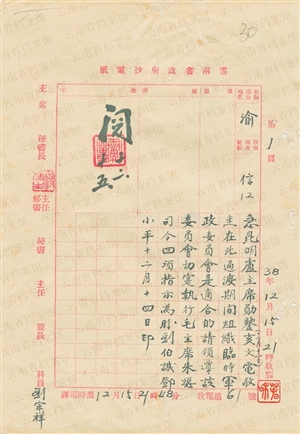 30
雲南省政府抄電紙
第 1 頁
渝
信江
急昆明盧主席勛鑒亥文電敬
主在此過渡期間組織臨時軍
政委員會是適合的請領導該
委員會切實執行毛主席朱總
司令四項指示為盼劉伯誠鄧
小平十二月十四日印
閱
十六
五
38年12月15日21時收
主席
秘書長
主任秘書
秘書
主任
股長
科員
劉宗祥
12月15日21時